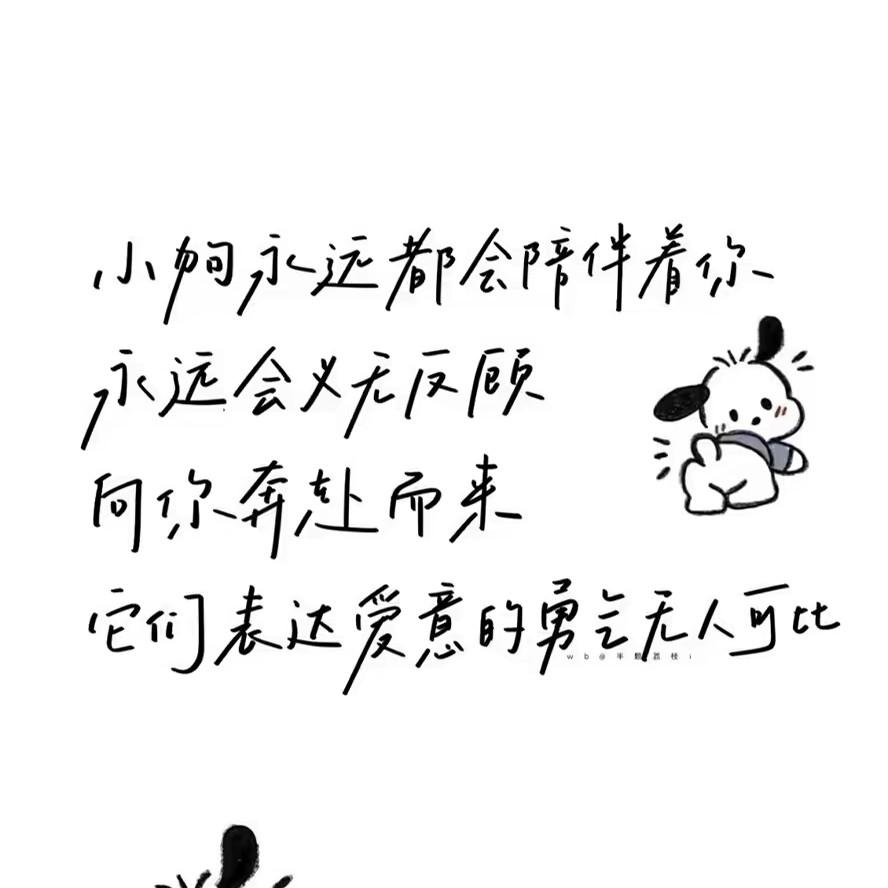 小狗永远都会陪伴着你
永远会义无反顾
向你奔赴而来
它们表达爱意的勇气无人可比
wb@半颗荔枝i